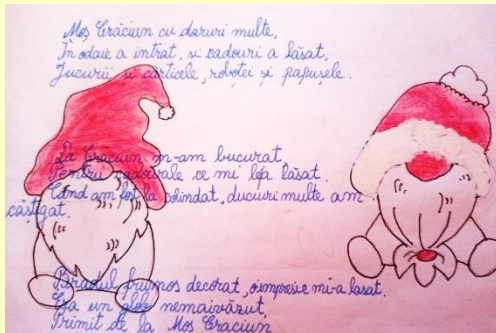 Moș Crăciun cu daruri multe,
În odaie a intrat, si cadouri a lăsat,
Jucurii si cărticele, roboței și papușele.
La Craciun m-am bucurat
Pentru cadourale ce mi le-a lăsat.
Când am fost la colindat, ducuri multe am
câștigat.
Bradul frumos decorat, o impresie mi-a lasat.
Cu un glob nemaivăzut,
Primit de la Moș Craciun